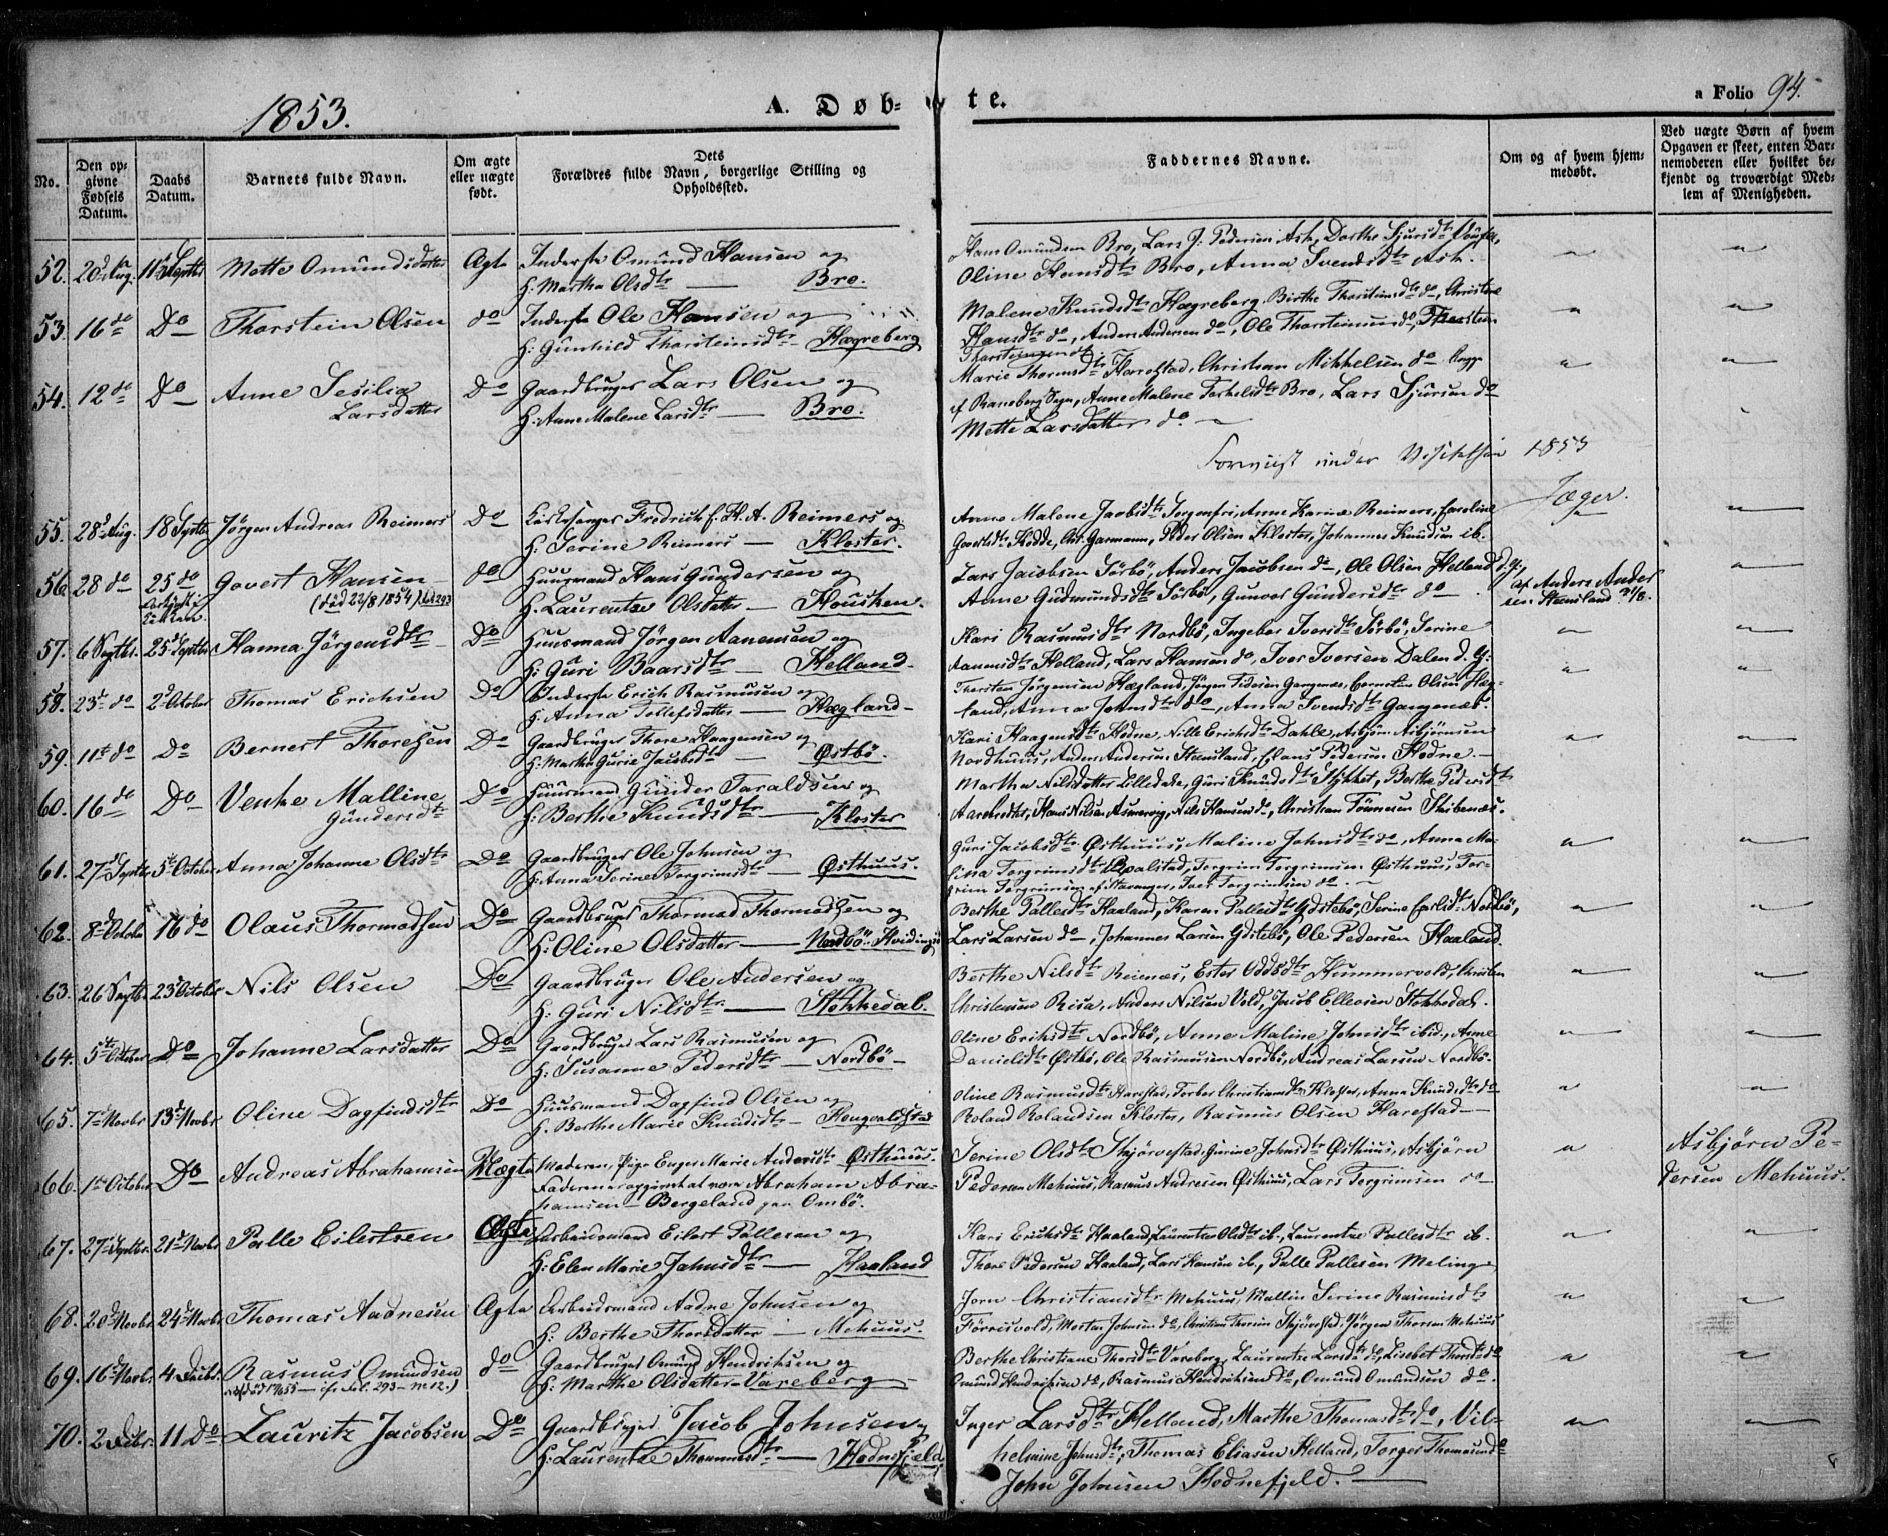 1853.
A. Døb-
te.
a Folio 94.
No.
Den op-
givne
Fødsels
Datum.
Daabs
Datum.
Barnets fulde Navn.
Om ægte
eller uægte
født.
Dets
Forældres fulde Navn, borgerlige Stilling og
Opholdssted.
Faddernes Navne.
Om og af hvem hjem-
medøbt.
Ved uægte Børn af hvem
Opgaven er skeet, enten Bar-
nemoderen eller hvilket be-
kjendt og troværdigt Med-
lem af Menigheden.
52. 20d Aug. 11 Septbr Mette Omundsdatter Ægte Inderste Omund Hansen og
H: Martha Olsdtr — Bro.
Hans Omundsen Bro, Lars J. Pedersen Ask, Dorthe Sjursdtr
Oline Hansdtr Bro, Anna Svendsdtr Ask.
53. 16 do Do Thorstein Olsen do Inderste Ole Hansen og
H: Gunhild Thorsteinsdtr Hægreberg
Malene Knudsdtr Hægreberg, Birthe Thorsteinsdtr do, Christine
Hansdtr do, Anders Andersen do, Ole Thorsteinsen do, Thorstein
Thorsteinsen do
54. 12 do Do Anne Sesilia
Larsdatter
Do Gaardbruger Lars Olsen og
H: Anne Malene Larsdtr — Bro.
Marie Thormsdtr Harestad, Christian Mikkelsen do
af Ranaberg Sogn, Anne Malene Torkelsdtr Bro, Lars Sjursen do
Mette Larsdatter do
Forevist under Visitatsen 1853
Jæger.
55. 28d Aug. 18 Septbr Jørgen Andreas Reimers Do Kirkesanger Fredrich f. H. A. Reimers og
H: Serine Reimers — Kloster.
Anne Malene Jacobsdtr Sorgenfri, Anne Karine Reimers, Caroline
Govertsdtr Hodde, Chr. Garmann, Peder Olsen Kloster, Johannes Knudsen ib.
56. 28 do 25 do Govert Hansen
(død 22/8 1854) fol 293
do Huusmand Hans Gundersen og
H. Laurentze Olsdatter — Housken.
Lars Jacobsen Sørbö, Anders Jacobsen do, Ole Olsen Helland d. y.,
Anne Gudmundsdtr Sörbö, Gunvor Gundersdtr do
af Anders Ander
sen Stensland
57. 6 Septbr. 25d Septbr Hanna Jörgensdtr Do Huusmand Jörgen Aanensen og
H: Guri Baarsdtr — Helland
Kari Rasmusdtr Nordbö, Ingebor Iversdtr Sörbö, Serine
Aanensdtr Helland, Lars Hansen do, Iver Iversen Dalen d. y:
58. 23d do 2d October Thomas Erichsen Do Inderste Erich Rasmusen og
H: Anna Tollefsdatter — Hægland
Thorsten Jörgensen Hægland, Jörgen Pedersen Gangenæs, Cornelius Olsen Hæg-
land, Anna Johnsdtr do, Anna Svendsdtr Gangenæs.
59. 11te do Do Bernert Thoresen Do Gaardbruger Thore Haagensen og
H: Martha Gurie Jacobsdtr — Østbö.
Kari Haagensdtr Hodne, Nille Erichsdtr Dahle, Asbjörn Asbjörnsen
Nordhuus, Anders Andersen Stensland, Claus Pedersen Hodne
60. 16 do Do Venke Malline
Gundersdtr
Do Huusmand Gunder Taraldsen og
H: Berthe Knudsdtr — Kloster
Martha Nilsdatter Lilledale, Guri Knudsdtr Stykket, Berthe Pedersdtr
Hans Nilsen Asmervig, Nils Hansen do, Christian Tönnesen
61. 27d Septbr 5te October Anna Johanne Olsdtr Do Gaardbruger Ole Johnsen og
H: Anna Serine Torgrimsdtr — Østhuus.
Guri Jacobsdtr Østhuus, Maline Johnsdtr do, Anna Ma-
lina Torgrimsdtr Opalstad, Torgrim Torgrimsen Østhuus, Tor-
grim Torgrimsen af Stavanger, Iver Torgrimsen do.
62. 8de October 16 do Olaus Thormodsen Do Gaardbruger Thormod Thormodsen og
H: Oline Olsdatter — Nordbö Hvidingsö
Berthe Pallesdtr Haaland, Karen Pallesdtr Ydstebö, Serine Carlsdtr Nordbö,
Lars Larsen do, Johannes Larsen Ydstebö, Ole Pedersen Haaland.
63. 26 Septbr 23d October Nils Olsen Do Gaardbruger Ole Andersen og
H: Guri Nilsdtr — Stokkedal.
Berthe Nilsdtr Reinæs, Ester Oddsdtr Hummervold, Christen
Christensen Risa, Anders Nilsen Vold, Jacob Ellevsen Stokkedal.
64. 5te October Do Johanne Larsdatter Do Gaardbruger Lars Rasmusen og
H: Susanne Pedersdtr — Nordbö
Oline Eriksdtr Nordbö, Anne Maline Johnsdtr ibid, Anne
Danielsdtr Østbö, Ole Rasmusen Nordbö, Andreas Larsen Nordbö.
65. 7de Novbr 13d Novbr Oline Dagfindsdtr Do Huusmand Dagfind Olsen og
H. Berthe Marie Knudsdtr — Rongvaldstad
Oline Rasmusdtr Harestad, Torbor Christiansdtr Kloster, Anna Knudsdtr do
Roland Rolandsen Kloster, Rasmus Olsen Harestad
66. 1te October Do Andreas Abrahamsen Uægte Moderen, Pige Enger Marie Andersdtr Østhuus.
Faderen er opgivet at være Abraham Abra-
hamsen Bergeland paa Ombö.
Serine Olsdtr Skjørvestad, Gurine Johnsdtr Østhuus, Asbjörn
Pedersen Mehuus, Rasmus Andresen Østhuus, Lars Torgrimsen do
Asbjørn Pe-
dersen Mehuus.
67. 27d Septbr. 21d Novbr Palle Eilertsen Ægte Arbeidsmand Eilert Pallesen og
H: Elen Marie Johnsdtr — Haaland
Kari Erichsdtr Haaland, Laurentze Olsdtr ib., Laurentze Pallesdtr ib.
Thore Pedersen Haaland, Lars Hansen ib., Palle Pallesen Meling
68. 20d Novbr 24d Novbr Thomas Aadnesen Ægte Arbeidsmand Aadne Johnsen og
H: Berthe Thorsdatter — Mehuus.
Jorn Christiansdtr Mehuus, Mallin Serine Rasmusdtr
Förrisvold, Morten Johnsen do, Christian Thorsen Skjørvestad, Jörgen Thorsen Mehuus
69. 16d Novbr. 4 Decbr. Rasmus Omundsen do Gaardbruger Omund Hendriksen og
H: Marthe Olsdatter Vareberg
Berthe Christiane Thorsdtr Vareberg, Laurentze Larsdtr do, Lisebet Thorsdtr do
Omund Hendriksen do, Rasmus Hendriksen do, Omund Omundsen do.
70. 2 Decbr. 11 Do Lauritz Jacobsen Do Gaardbruger Jacob Johnsen og
H: Laurentze Thommesdtr — Hodnefjeld
Inger Larsdtr Helland, Marthe Thomasdtr do, Vil-
helmine Johnsdtr, Thomas Eliasen Helland, Torger Thomasen do
John Johnsen Hodnefjeld.